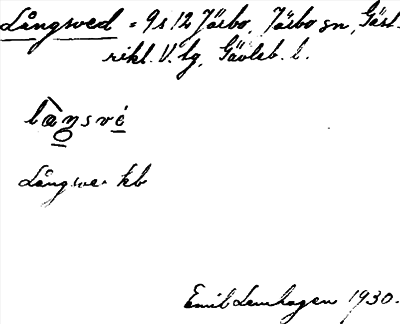 Långsved = 9 s 12 Järbo, Järbo sn, Gästr.
rikl. V. lg, Gävleb. l.
låŋsvé
Långsve- kb
Emil Lemhagen 1930.